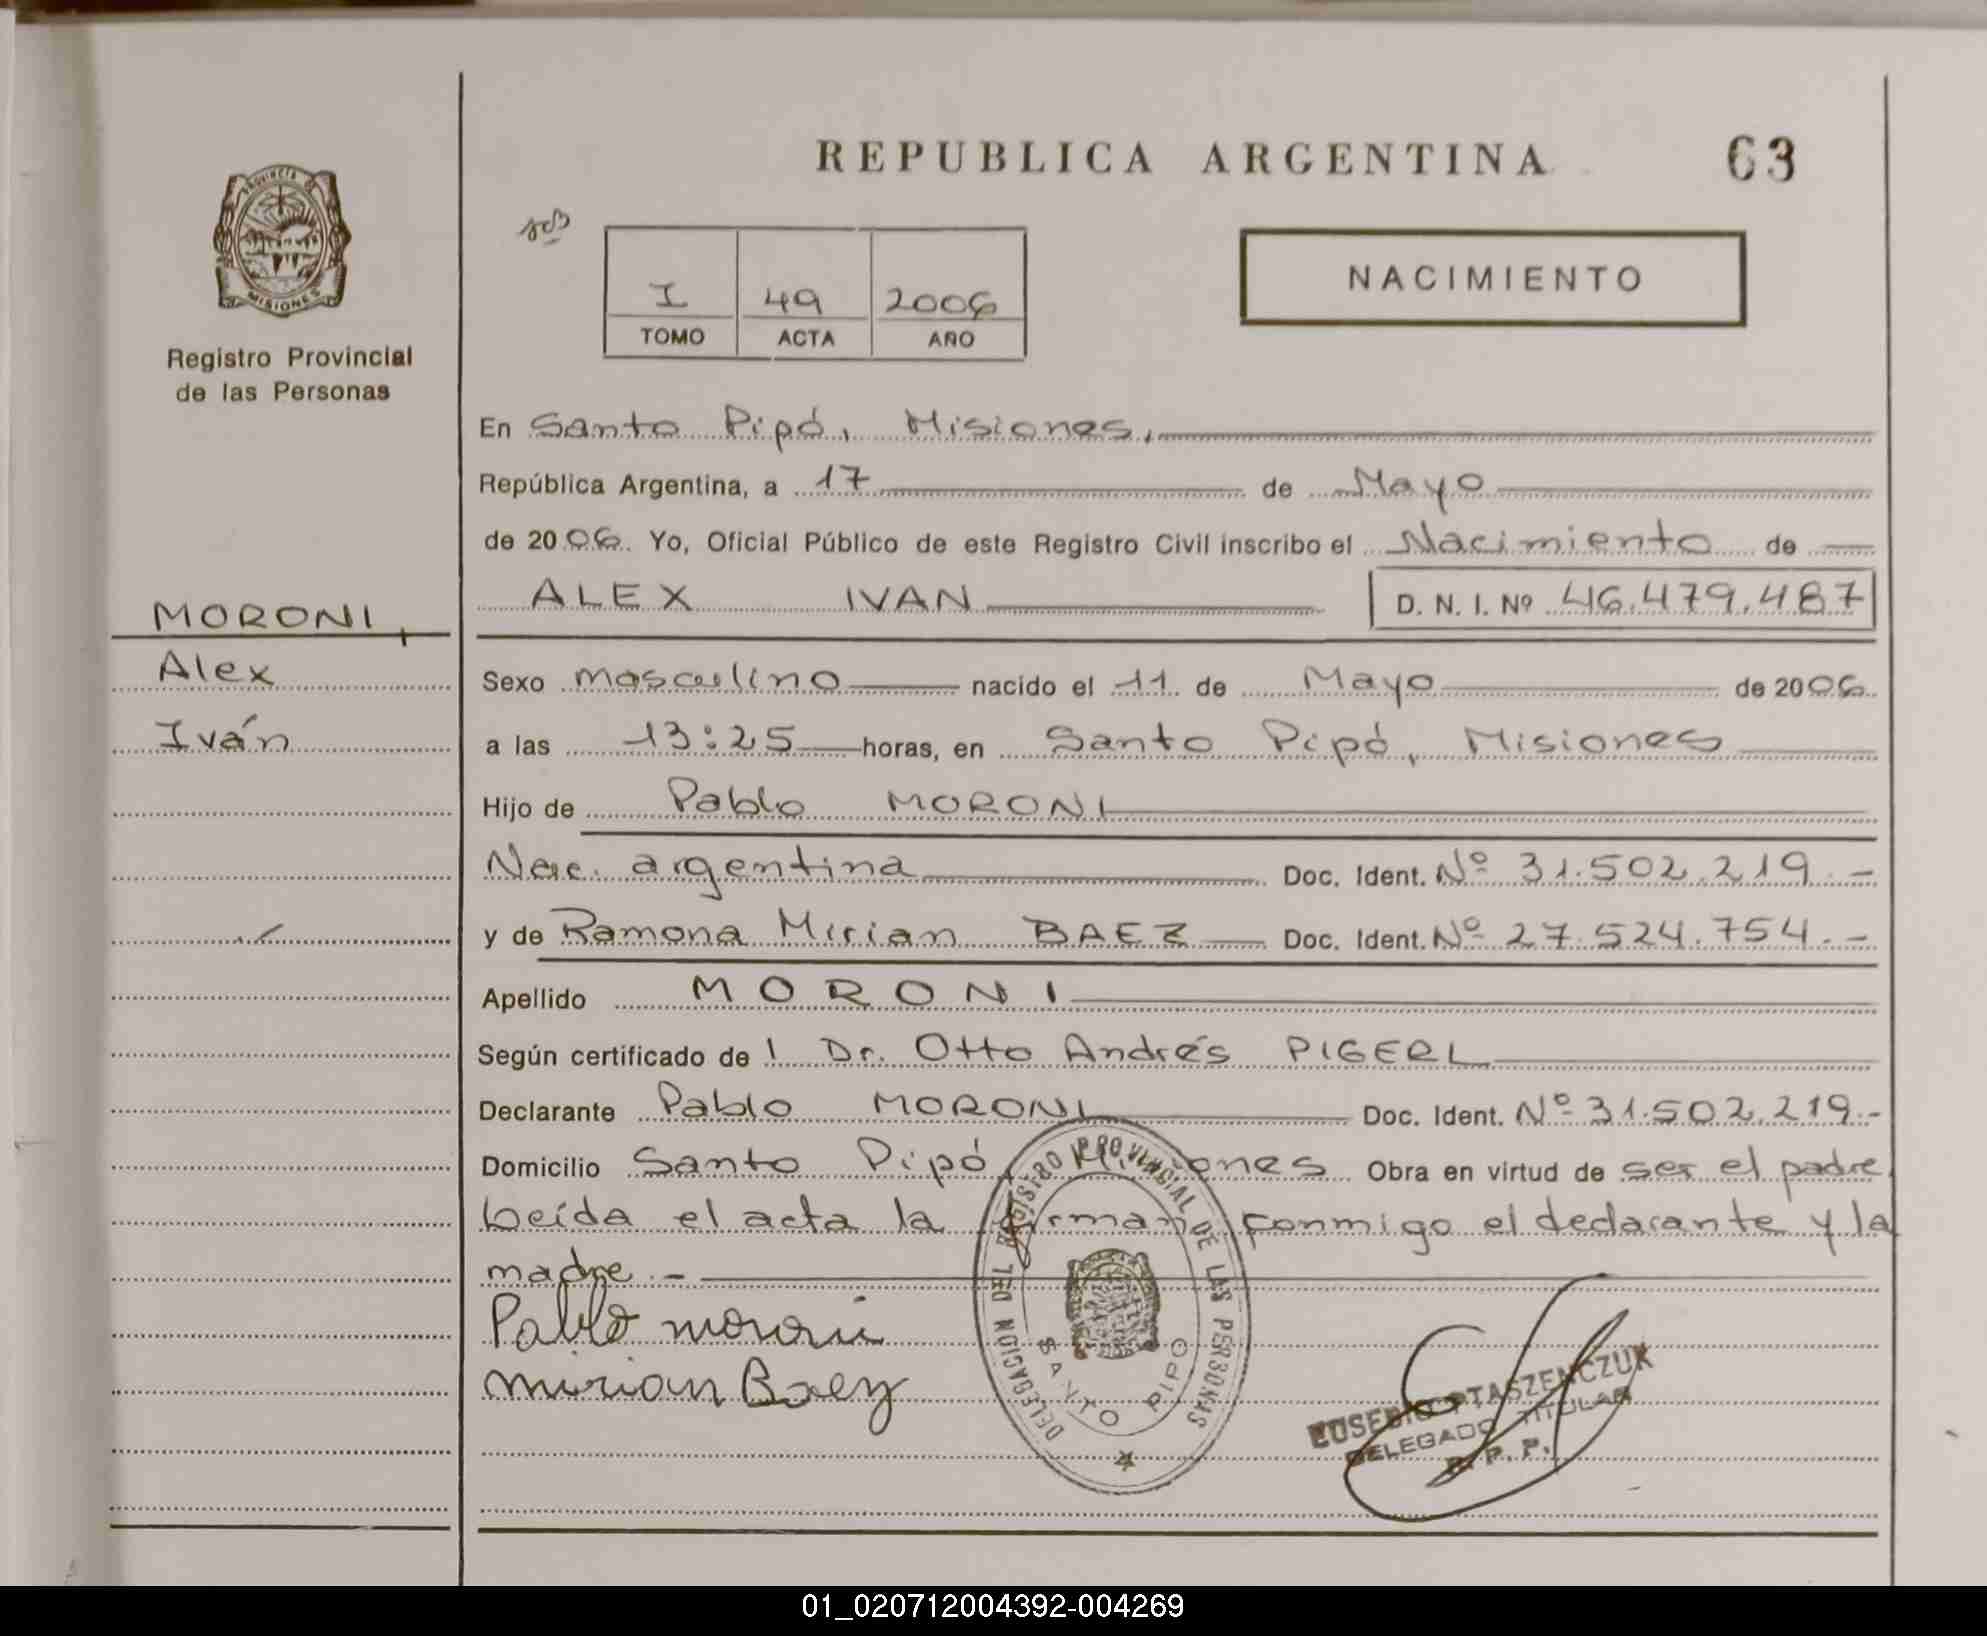 REPUBLICA ARGENTINA 63
PROVINCIA DE
MISIONES
Registro Provincial
de las Personas
I 49 2006
TOMO ACTA AÑO
NACIMIENTO
En Santo Pipó, Misiones,
República Argentina, a 17 de Mayo
de 2006. Yo, Oficial Público de este Registro Civil inscribo el Nacimiento de
ALEX IVAN D. N. I. Nº 46.479.487
MORONI,
Alex
Iván
Sexo masculino nacido el 11 de Mayo de 2006
a las 13:25 horas, en Santo Pipó, Misiones
Hijo de Pablo MORONI
Nac. argentina Doc. Ident. Nº 31.502.219.-
y de Ramona Mirian BAEZ Doc. Ident. Nº 27.524.754.-
Apellido MORONI
Según certificado de l Dr. Otto Andrés PIGERL
Declarante Pablo MORONI Doc. Ident. Nº 31.502.219.-
Domicilio Santo Pipó, Misiones Obra en virtud de ser el padre
Leída el acta la firman conmigo el declarante y la
madre.-
Pablo moroni
mirian Baez
DELEGACION DEL REGISTRO PROVINCIAL DE LAS PERSONAS
SANTO PIPO
EUSEBIO PTASZENCZUK
DELEGADO TITULAR
R. P. P.
01_020712004392-004269